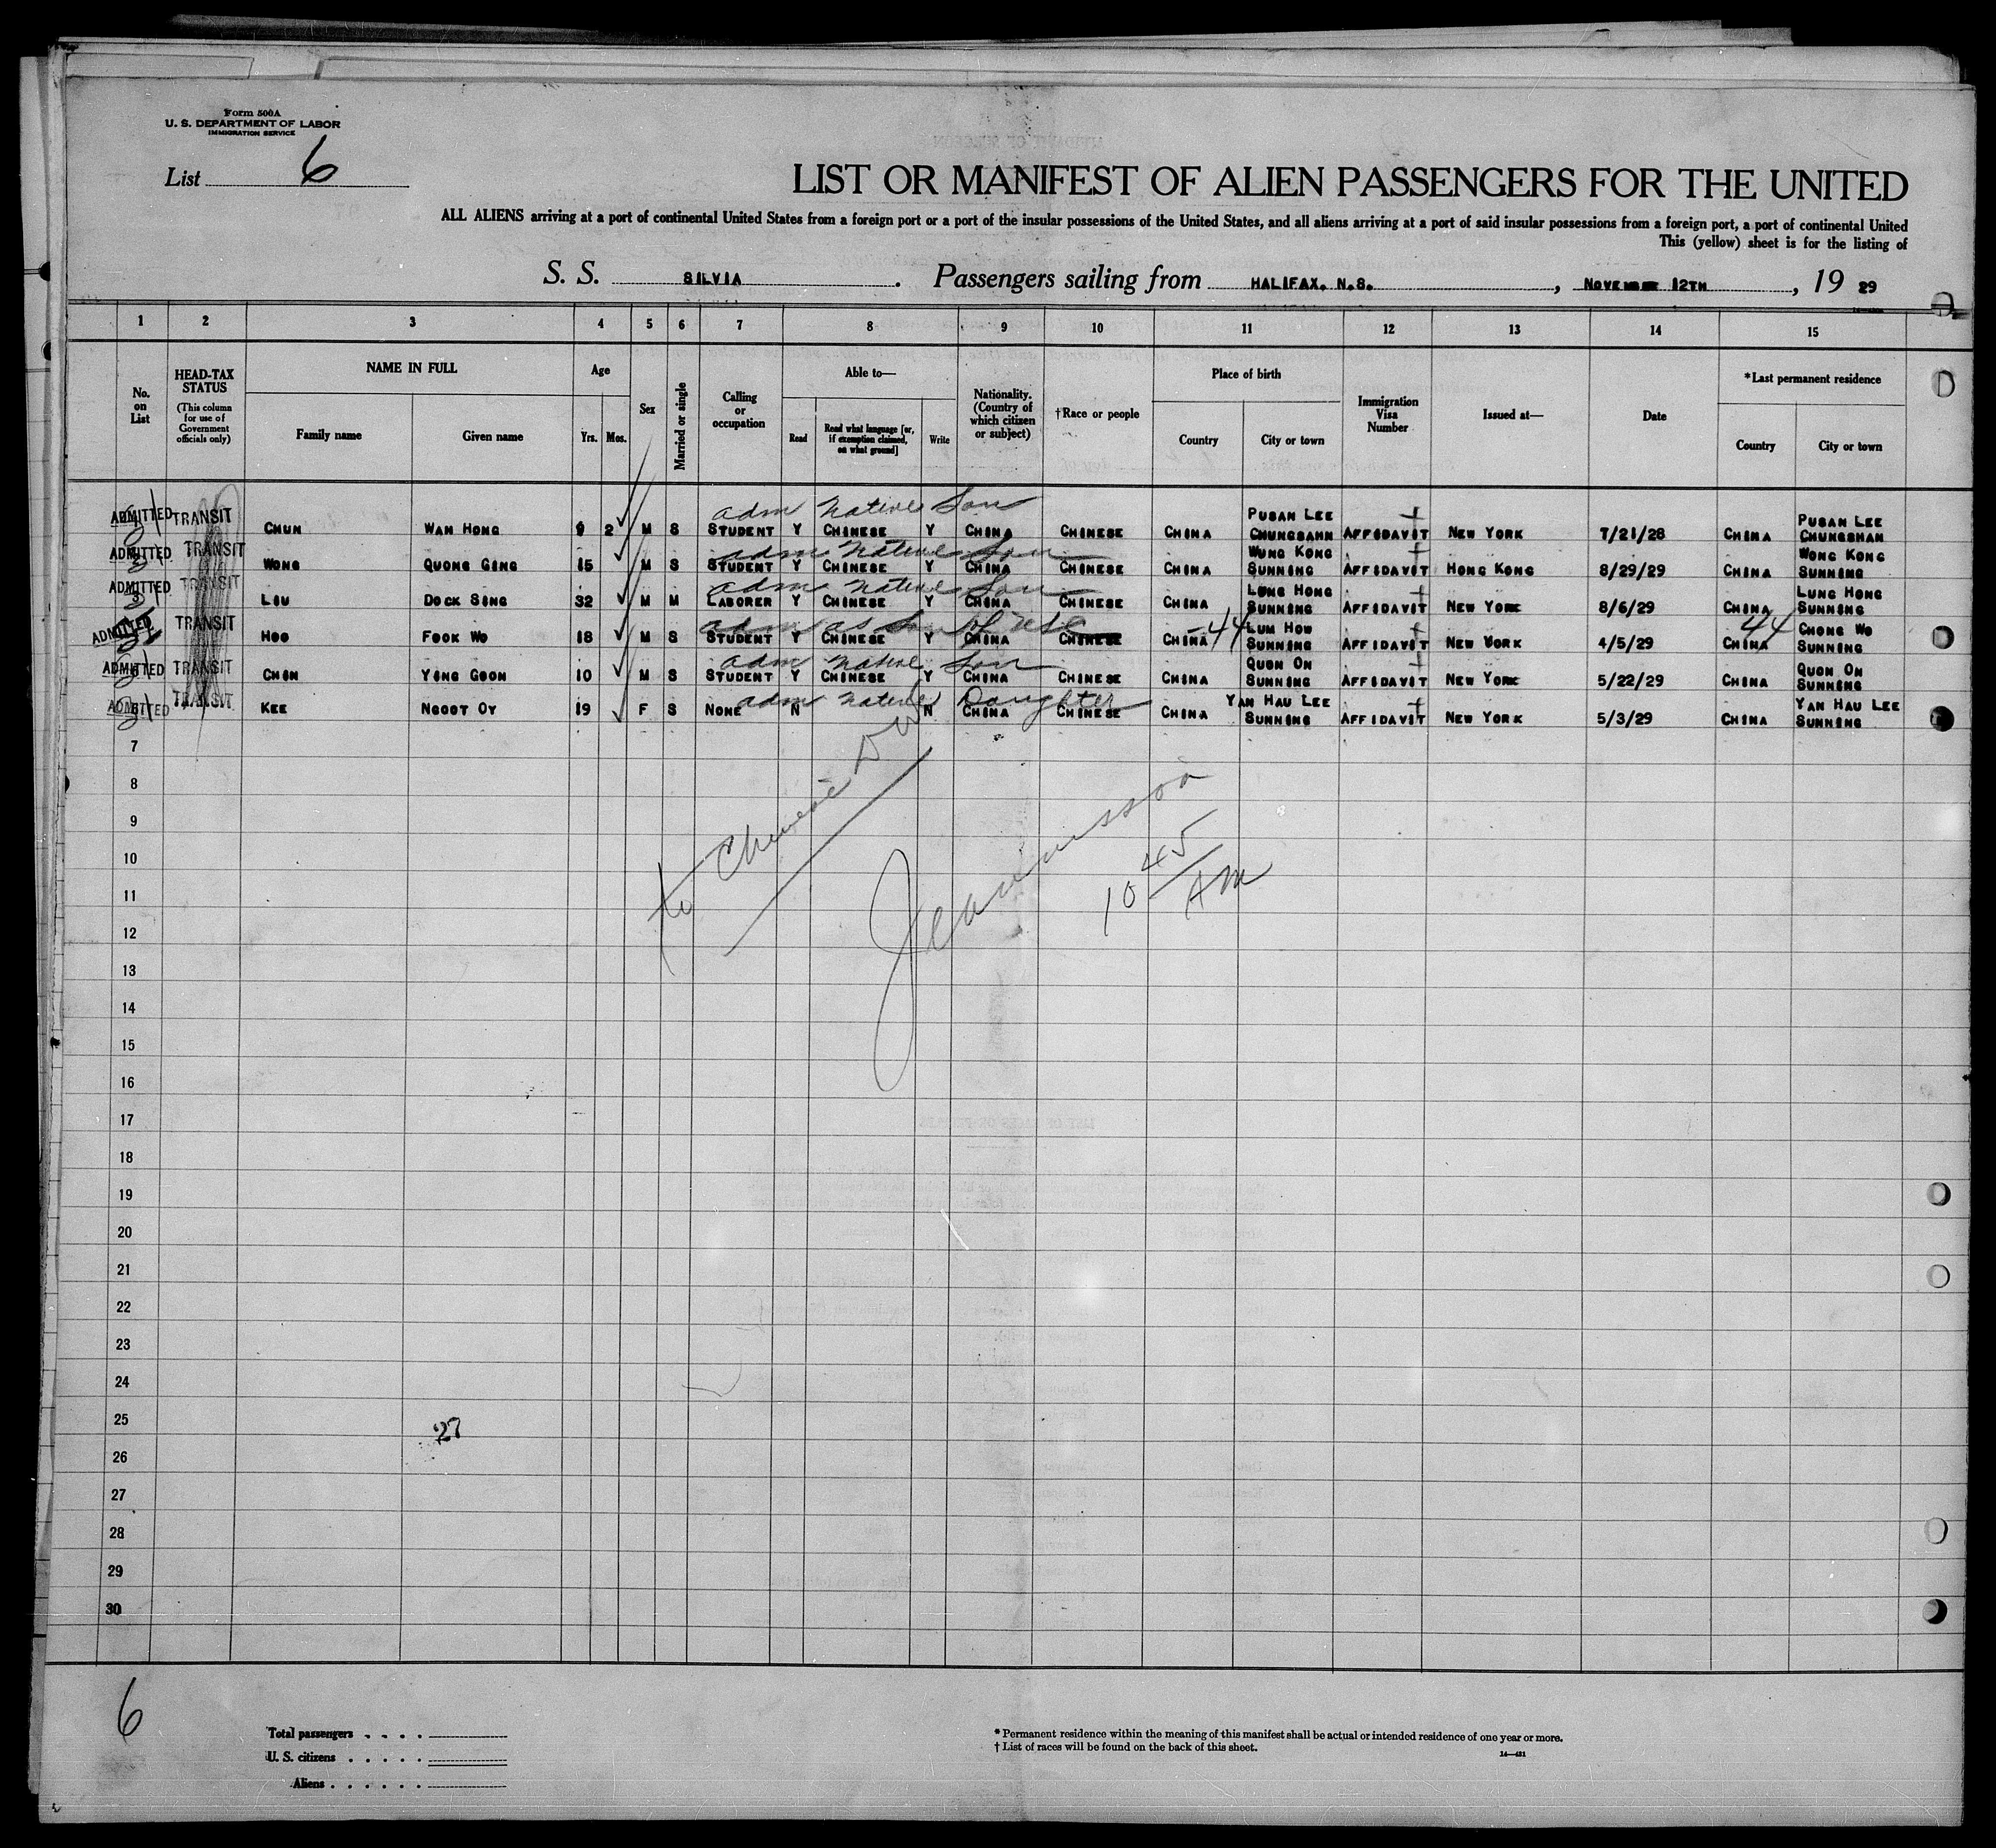 Form 500A
U. S. DEPARTMENT OF LABOR
IMMIGRATION SERVICE
List 6
LIST OR MANIFEST OF ALIEN PASSENGERS FOR THE UNITED
ALL ALIENS arriving at a port of continental United States from a foreign port or a port of the insular possessions of the United States, and all aliens arriving at a port of said insular possessions from a foreign port, a port of continental United
This (yellow) sheet is for the listing of
S. S. SILVIA. Passengers sailing from HALIFAX, N.S., NOVEMBER 12TH, 19 29
1 2 3 4 5 6 7 8 9 10 11 12 13 14 15
No. on List
HEAD-TAX STATUS (This column for use of Government officials only)
NAME IN FULL
Family name Given name
Age
Yrs. Mos.
Sex
Married or single
Calling or occupation
Able to—
Read Read what language [or, if exemption claimed, on what ground] Write
Nationality. (Country of which citizen or subject)
†Race or people
Place of birth
Country City or town
Immigration Visa Number
Issued at—
Date
*Last permanent residence
Country City or town
adm native son
ADMITTED TRANSIT CHUN WAN HONG 9 2 M S STUDENT Y CHINESE Y CHINA CHINESE CHINA PUSAN LEE CHUNGSAHN AFFIDAVIT NEW YORK 7/21/28 CHINA PUSAN LEE CHUNGSHAN
adm native son
ADMITTED TRANSIT WONG QUONG GING 15 M S STUDENT Y CHINESE Y CHINA CHINESE CHINA WUNG KONG SUNNING AFFIDAVIT HONG KONG 8/29/29 CHINA WONG KONG SUNNING
adm native son
ADMITTED TRANSIT LIU DOCK SING 32 M M LABORER Y CHINESE Y CHINA CHINESE CHINA LUNG HONG SUNNING AFFIDAVIT NEW YORK 8/6/29 CHINA LUNG HONG SUNNING
adm as
ADMITTED TRANSIT HOO FOOK WO 18 M S STUDENT Y CHINESE Y CHINA CHINESE CHINA 44 LUM HOW SUNNING AFFIDAVIT NEW YORK 4/5/29 CHINA 44 CHONG WO SUNNING
adm native son
ADMITTED TRANSIT CHIN YING GOON 10 M S STUDENT Y CHINESE Y CHINA CHINESE CHINA QUON ON SUNNING AFFIDAVIT NEW YORK 5/22/29 CHINA QUON ON SUNNING
adm native Daughter
ADMITTED TRANSIT KEE NGOOT OY 19 F S NONE N N CHINA CHINESE CHINA YAN HAU LEE SUNNING AFFIDAVIT NEW YORK 5/3/29 CHINA YAN HAU LEE SUNNING
7
8
9
10
11
12
13
14
15
16
17
18
19
20
21
22
23
24
25
26
27
28
29
30
to Chinese Div
10 45 AM
27
6
Total passengers
U. S. citizens
Aliens
* Permanent residence within the meaning of this manifest shall be actual or intended residence of one year or more.
† List of races will be found on the back of this sheet.
14—431